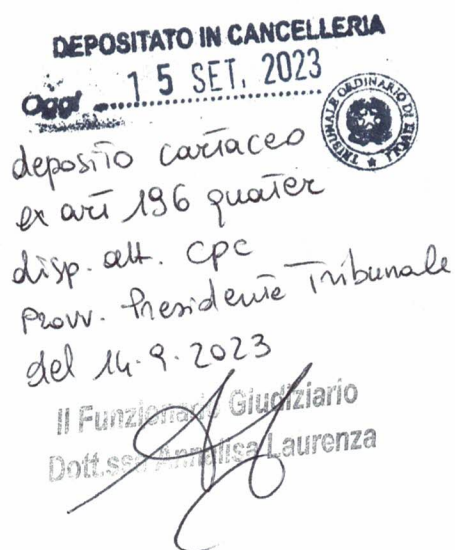 DEPOSITATO IN CANCELLERIA
Oggi 15 SET. 2023
TRIBUNALE ORDINARIO DI TIVOLI
deposito cartaceo
ex art 196 quater
disp. att. cpc
Provv. Presidente Tribunale
del 14.9.2023
Il Funzionario Giudiziario
Dott.ssa Annalisa Laurenza